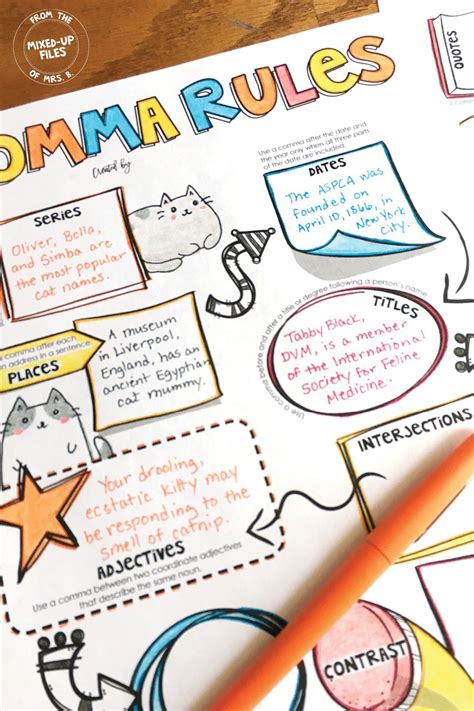 FROM THE
MIXED-UP
FILES
OF MRS. B.
OMMA RULES
Created by:
QUOTES
Use a comma after the date and
the year only when all three parts
of the date are included.
DATES
The ASPCA was
founded on
April 10, 1866, in
New York
city.
SERIES
Oliver, Bella,
and Simba are
the most popular
cat names.
Use a comma before and after a title or degree following a person's name
TITLES
Tabby Black,
DVM, is a member
of the International
Society for Feline
Medicine.
comma after each
an address in a sentence
PLACES
A museum
in Liverpool,
England, has an
ancient Egyptian
cat mummy.
INTERJECTIONS
Your drooling,
ecstatic kitty may
be responding to the
smell of catnip.
ADJECTIVES
Use a comma between two coordinate adjectives
that describe the same noun.
CONTRAST